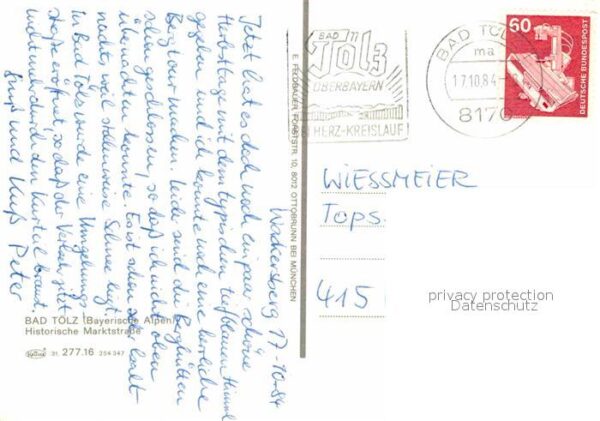 Wackersberg 17-10-84
Jetzt hat es doch noch ein paar schöne
Herbsttage mit dem typischen tiefblauen Himmel
gegeben und ich konnte noch eine herrliche
Bergtour machen. Leider sind die Berghütten
schon geschlossen, so daß ich nicht oben
übernachten konnte. Es ist schon sehr kalt
nachts, weil stellenweise Schnee liegt.
In Bad Tölz wurde eine Umgehungs-
straße eröffnet, so daß der Verkehr jetzt
nicht mehr durch den Kurteil braust.
Gruß und Kuß Peter
BAD TÖLZ (Bayerische Alpen)
Historische Marktstraße
31 277.16 254 347
E. FELDBAUER, FORSTSTR. 10, 8012 OTTOBRUNN BEI MÜNCHEN
BAD
Tölz
OBERBAYERN
HERZ-KREISLAUF
BAD TÖLZ
ma
17.10.84
8170
60
DEUTSCHE BUNDESPOST
WIESSMEIER
Tops
415
privacy protection
Datenschutz